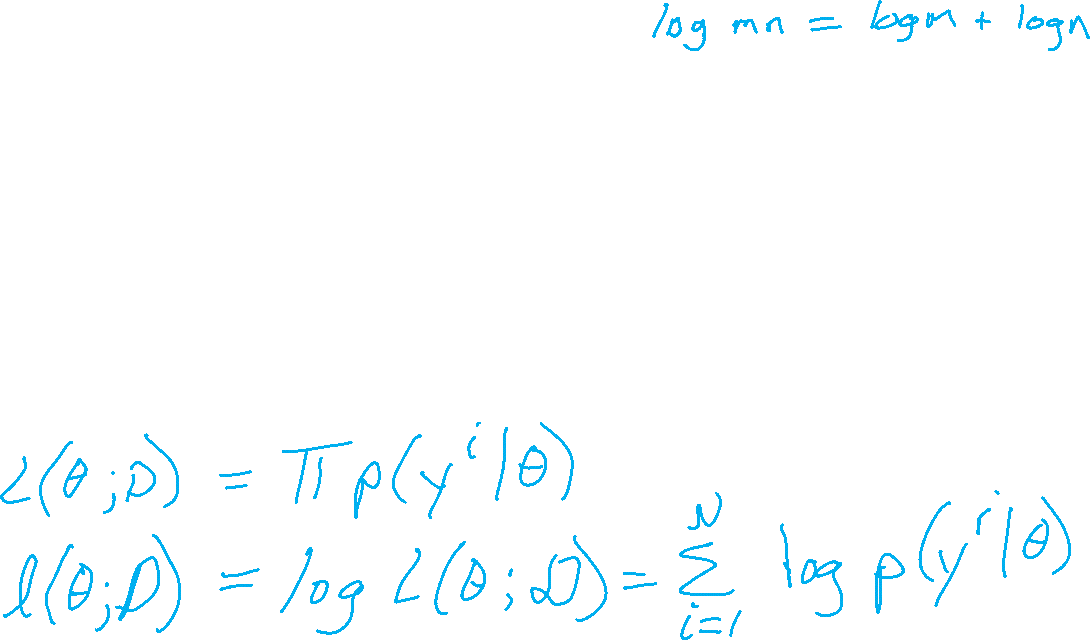 log mn = log m + log n
L(θ;D) = Π p(yⁱ|θ)
l(θ;D) = log L(θ;D) = Σ_{i=1}^{N} log p(yⁱ|θ)